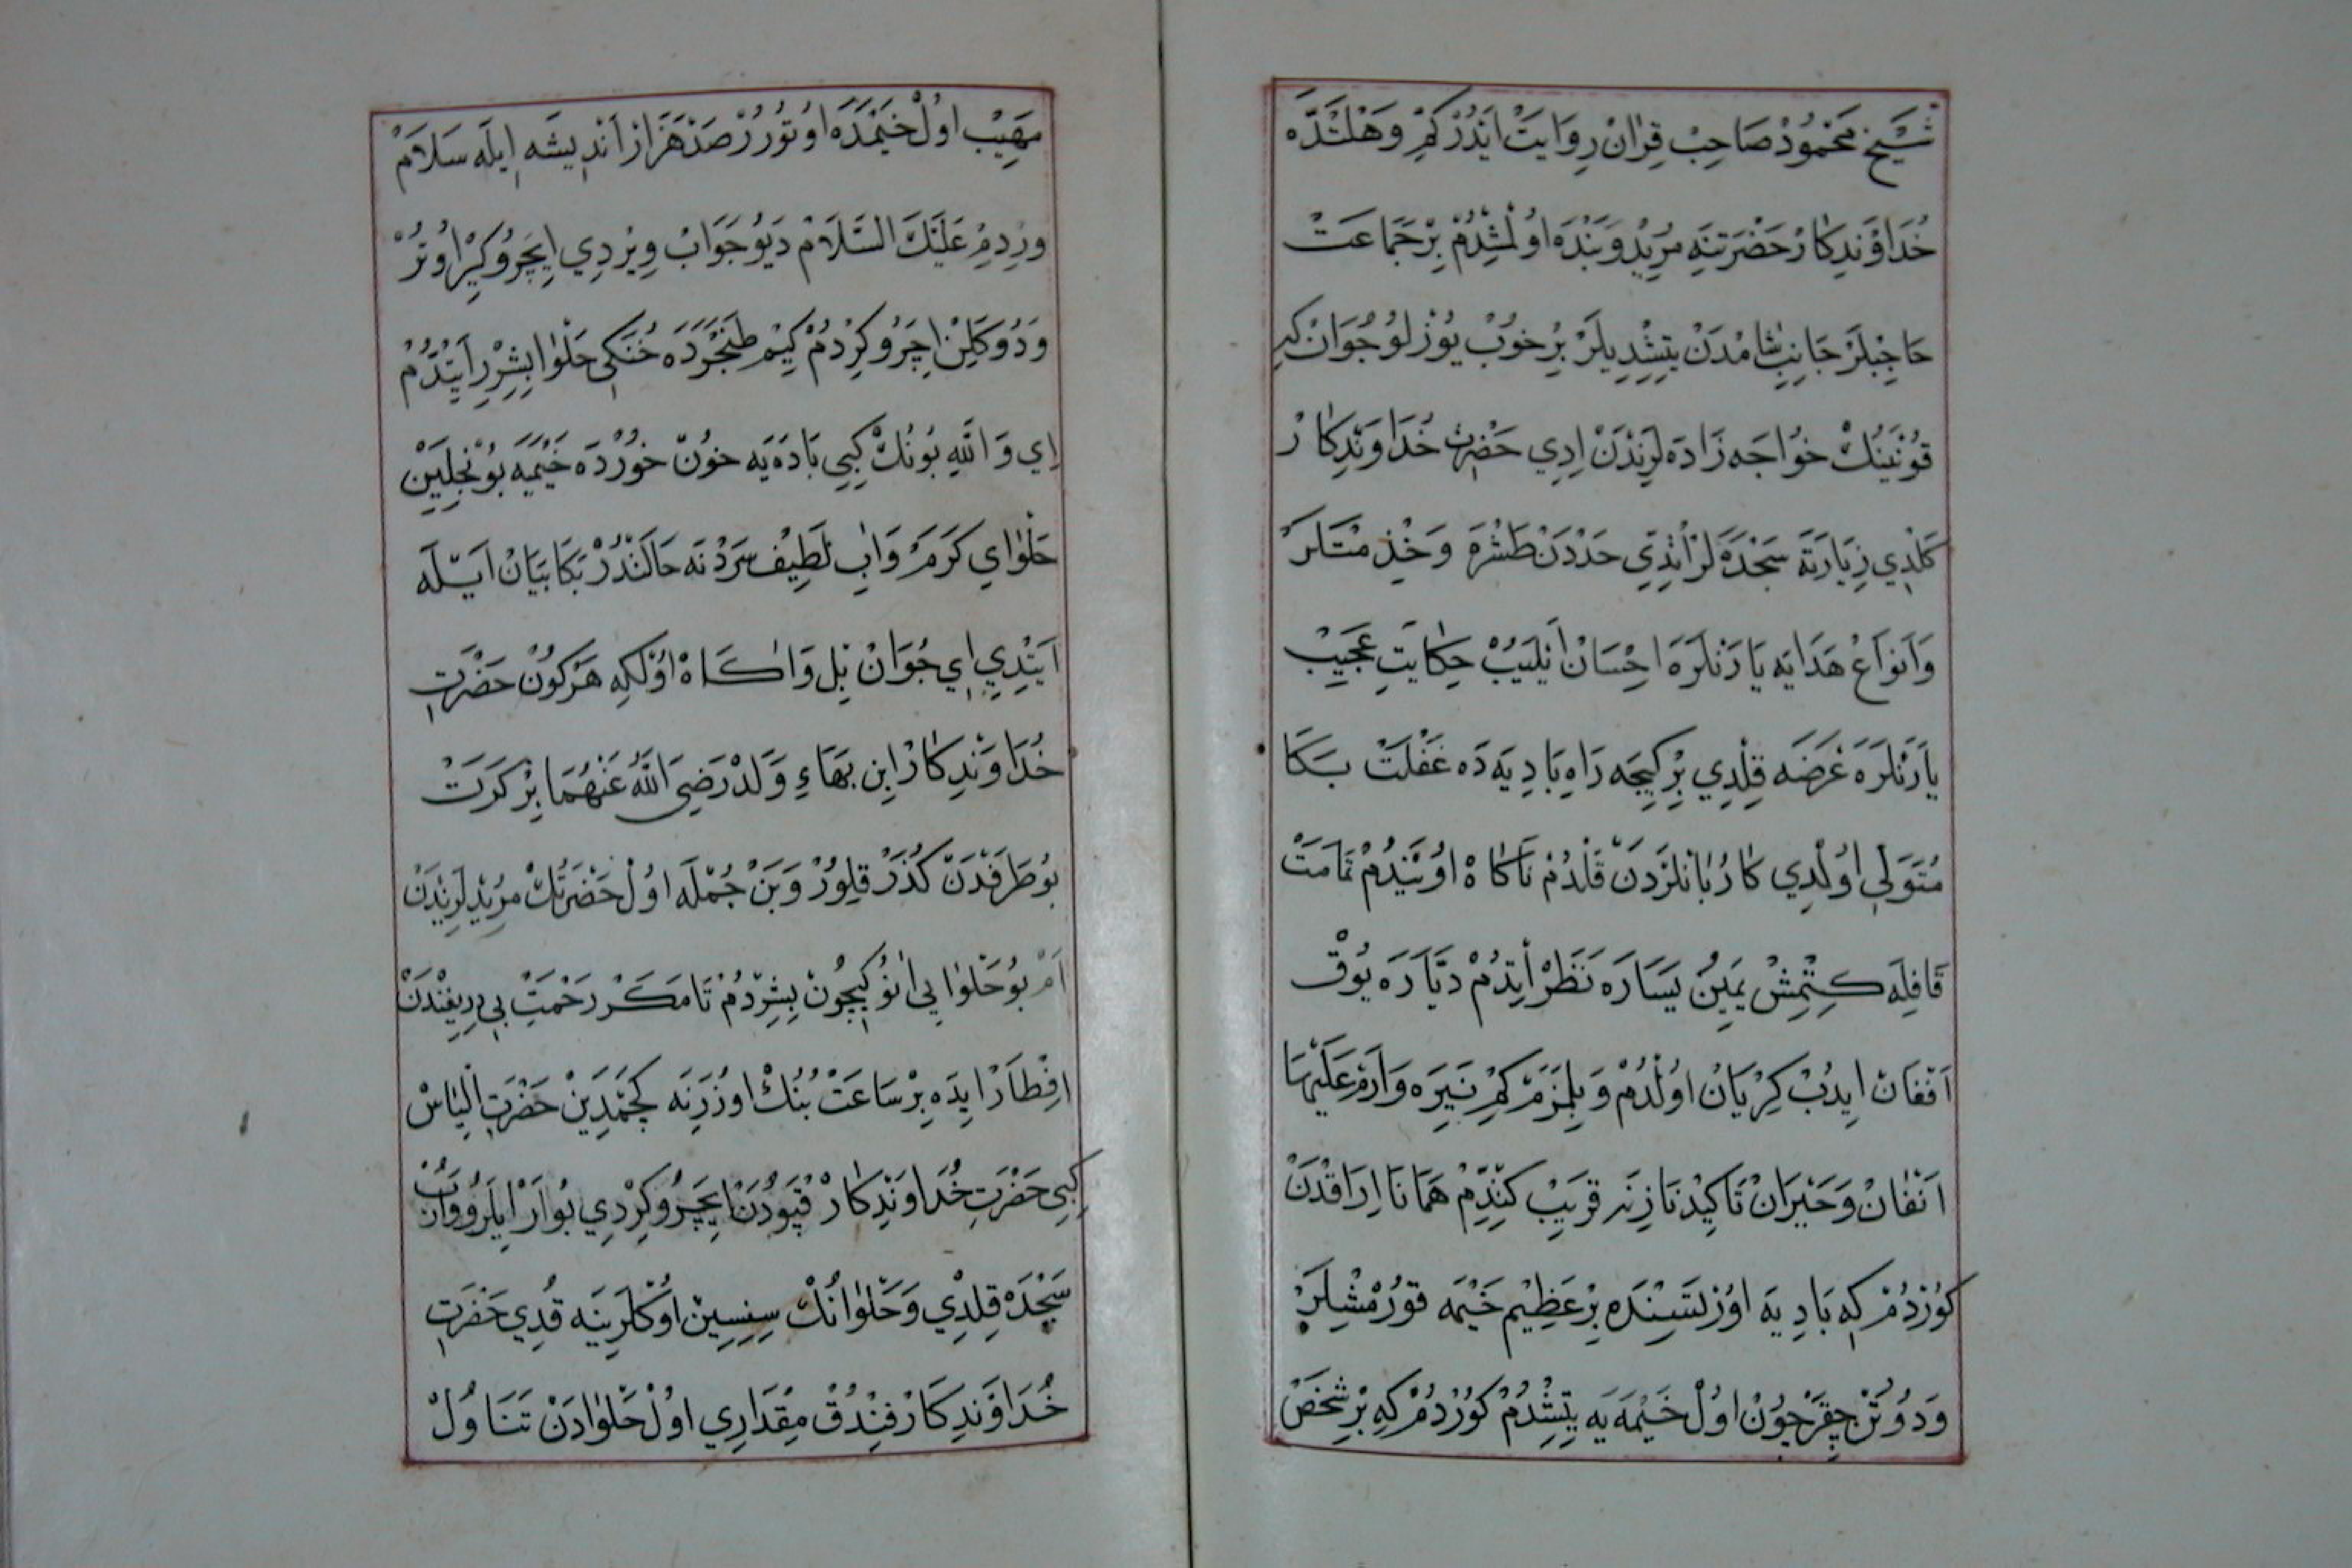 شَيْخ مَحْمُودْ صَاحِبْ قِرَانْ رِوَايَتْ اَيْدُرْ كِمْ وَهْلَتْدَه
خُدَاوَنْدِكَارْ حَضْرَتِنَه مُرِيدْ وَبَنْدَه اوُلْمِشْدُمْ بِرْ جَمَاعَتْ
حَاجِيلَرْ جَانِبِ شَامْدَنْ يِتِشْدِيلَرْ بِرْ خُوبْ يُوزْلُو جُوَانْ كِه
قُونْيَنُكْ خُواجَه زَادَه لَرِنْدَنْ اِدِي حَضْرَتِ خُدَاوَنْدِكَارْ
كَلْدِي زِيَارَتَه سَجْدَه لَرْ اَتْدِي حَدْدَنْ طَشْرَه وَخِذْمَتْلَرْ
وَاَنْوَاعْ هَدَايَه يَارَنْلَرَه اِحْسَانْ اَيْلَيُبْ حِكَايَتِ عَجِيبْ
يَارَنْلَرَه عَرْضَه قِلْدِي بِرْ كِيجَه رَاهِ بَادِيَه دَه غَفْلَتْ بَكَا
مُتَوَلِّي اوُلْدِي كَارُبَانْلَرْدَنْ قَلْدُمْ نَاكَاهْ اوُيَنْدُمْ تَمَامَتْ
قَافِلَه كِتْمِشْ يَمِينْ يَسَارَه نَظَرْ اَيْتِدُمْ دَيَّارَه يُوقْ
اَفْغَانْ ايدُبْ كِرْيَانْ اوُلْدُمْ وَبِلْمَزَمْ كِمْ نَيْرَه وَارَمْ عَلَيْهَا
اَفْغَانْ وَحَيْرَانْ تَاكِيدْ نَازِنَه قَرِيبْ كِتْدِمْ هَمَانَا اِرَاقْدَنْ
كُورْدُمْ كِه بَادِيَه اوُزَسِنْدَه بِرْ عَظِيمْ خَيْمَه قُورْمُشْلَرْ
وَدُوتُنْ چِقَرْ چُونْ اوُلْ خَيْمَه يَه يِتِشْدُمْ كُورْدُمْ كِه بِرْ شَخَصْ
مَهِيبْ اوُلْ خَيْمَدَه اوُتُورُرْ صَدْ هَزَارْ اَنْدِيشَه اِيلَه سَلَامْ
وِرِدِمْ عَلَيْكَ السَّلَامْ دَيُو جَوَابْ وِيرْدِي اِيچَرُو كِيرْ اوُتُرْ
وَدُوكَلِنْ اِچَرُو كِرْدُمْ كِيمْ طَنْجَرَدَه خُنَكِي حَلْوَا بِشِرِرْ اَيْتْدُمْ
اِي وَاللهِ بُونُكْ كِبِي بَادِيَه خُونْ خُورْدَه خَيْمَيَه بُونْجِلَيِنْ
حَلْوَايِ كَرَمْ وَابِ لَطِيفِ سَرَدْ نَه حَالَتْدُرْ بَكَا بَيَانْ اَيْلَه
اَيْتْدِي اِي جُوَانْ بِلْ وَاكَاهْ اوُلْكِه هَرْ كُونْ حَضْرَتِ
خُدَاوَنْدِكَارْ اِبِنِ بَهَاءِ وَلَدْ رَضِيَ اللهُ عَنْهُمَا بِرْ كَرَتْ
بُو طَرَفْدَنْ كُذَرْ قِلُورْ وَبَنْ جُمْلَه اوُلْ حَضْرَتُكْ مُرِيدْلَرِنْدَنْ
اَمْ بُو حَلْوَا يِي اَنُوكِيچُونْ بِشِرْدُمْ تَا مَكَرْ رَحْمَتِ بِي دِرِيغِنْدَنْ
اِفْطَارْ ايدَه بِرْ سَاعَتْ بُنُكْ اوُزَرِنَه كَچْمَدِينْ حَضْرَتِ اِلْيَاسْ
كِبِي حَضْرَتِ خُدَاوَنْدِكَارْ قَپُودَنْ اِيچَرُو كِرْدِي بُو اَرْ اِيلَرُو وَارُبْ
سَجْدَه قِلْدِي وَحَلْوَانُكْ سِنِيسِينْ اوُكْلَرِينَه قُودِي حَضْرَتِ
خُدَاوَنْدِكَارْ فِنْدُقْ مِقْدَارِي اوُلْ حَلْوَادَنْ تَنَاوُلْ